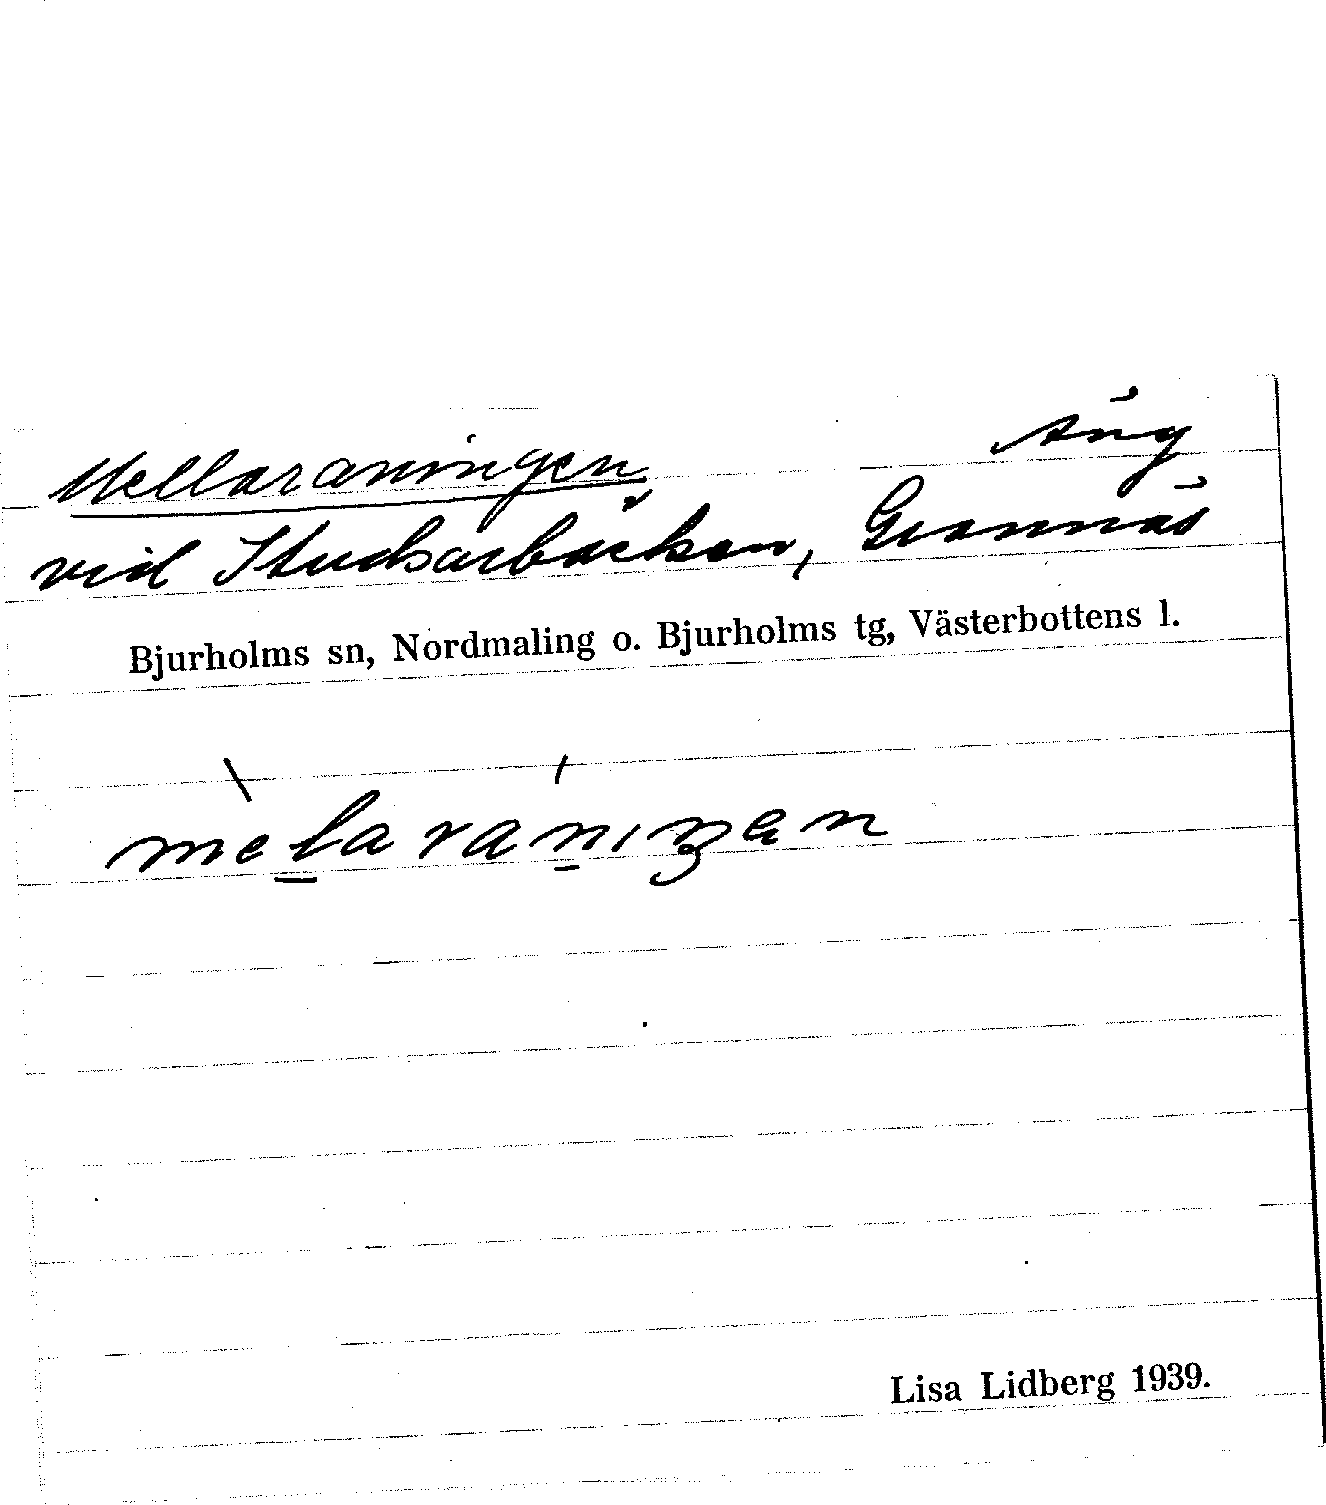 Mellaraningen Äng
vid Studsarbäcken, Grannäs
Bjurholms sn, Nordmaling o. Bjurholms tg, Västerbottens l.
Lisa Lidberg 1939.